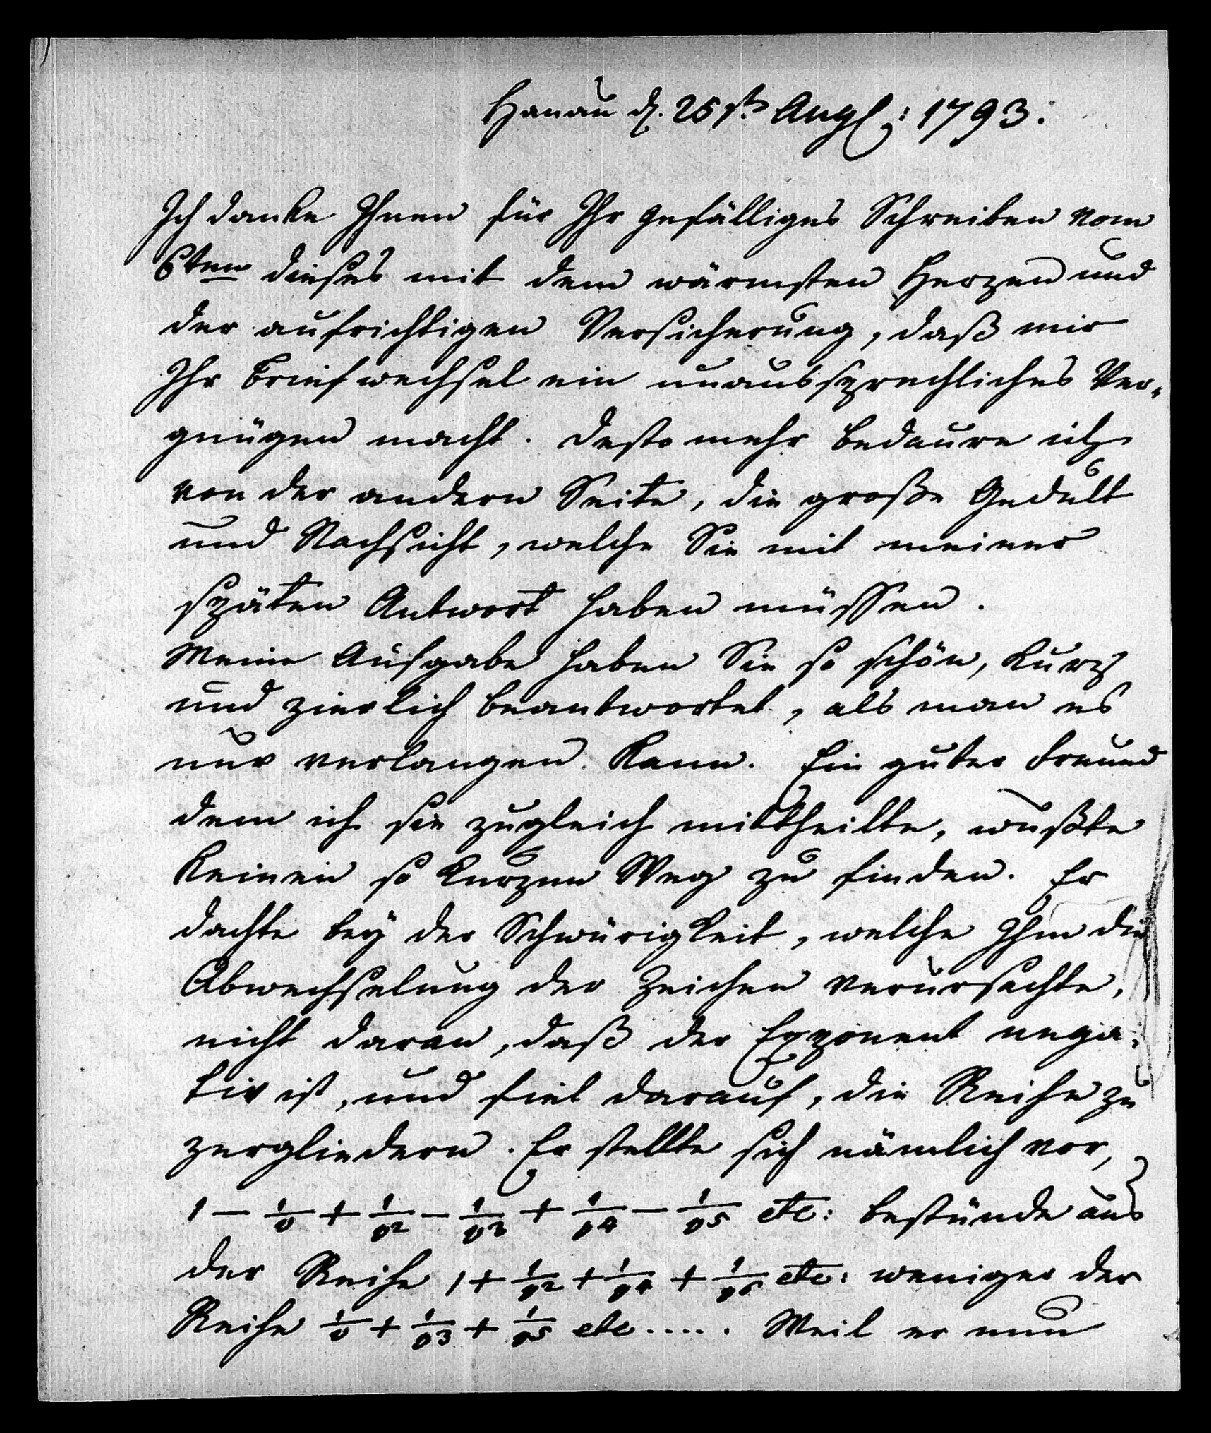 Hanau d. 25st. Augs: 1793.
Ich danke Ihnen für Ihr gefälliges Schreiben vom
6ten dieses mit dem wärmsten Herzen und
der aufrichtigen Versicherung, daß mir
Ihr Briefwechsel ein unaussprechliches Ver-
gnügen macht. Desto mehr bedaure ich
von der andern Seite, die große Gedult
und Nachsicht, welche Sie mit meiner
späten Antwort haben müssen.
Meine Aufgabe haben Sie so schön, kurz
und zierlich beantwortet, als man es
nur verlangen kann. Ein guter Freund
dem ich sie zugleich mittheilte, wußte
keinen so kurzen Weg zu finden. Er
dachte bey der Schwürigkeit, welche Ihm die
Abwechselung der Zeichen verursachte,
nicht daran, daß der Exponent nega-
tiv ist, und fiel darauf, die Reihe zu
zergliedern. Er stellte sich nämlich vor,
1 - 1/v + 1/v2 - 1/v3 + 1/v4 - 1/v5 etc: bestünde aus
der Reihe 1 + 1/v2 + 1/v4 + 1/v6 etc: weniger der
Reihe 1/v + 1/v3 + 1/v5 etc..... Weil er nun